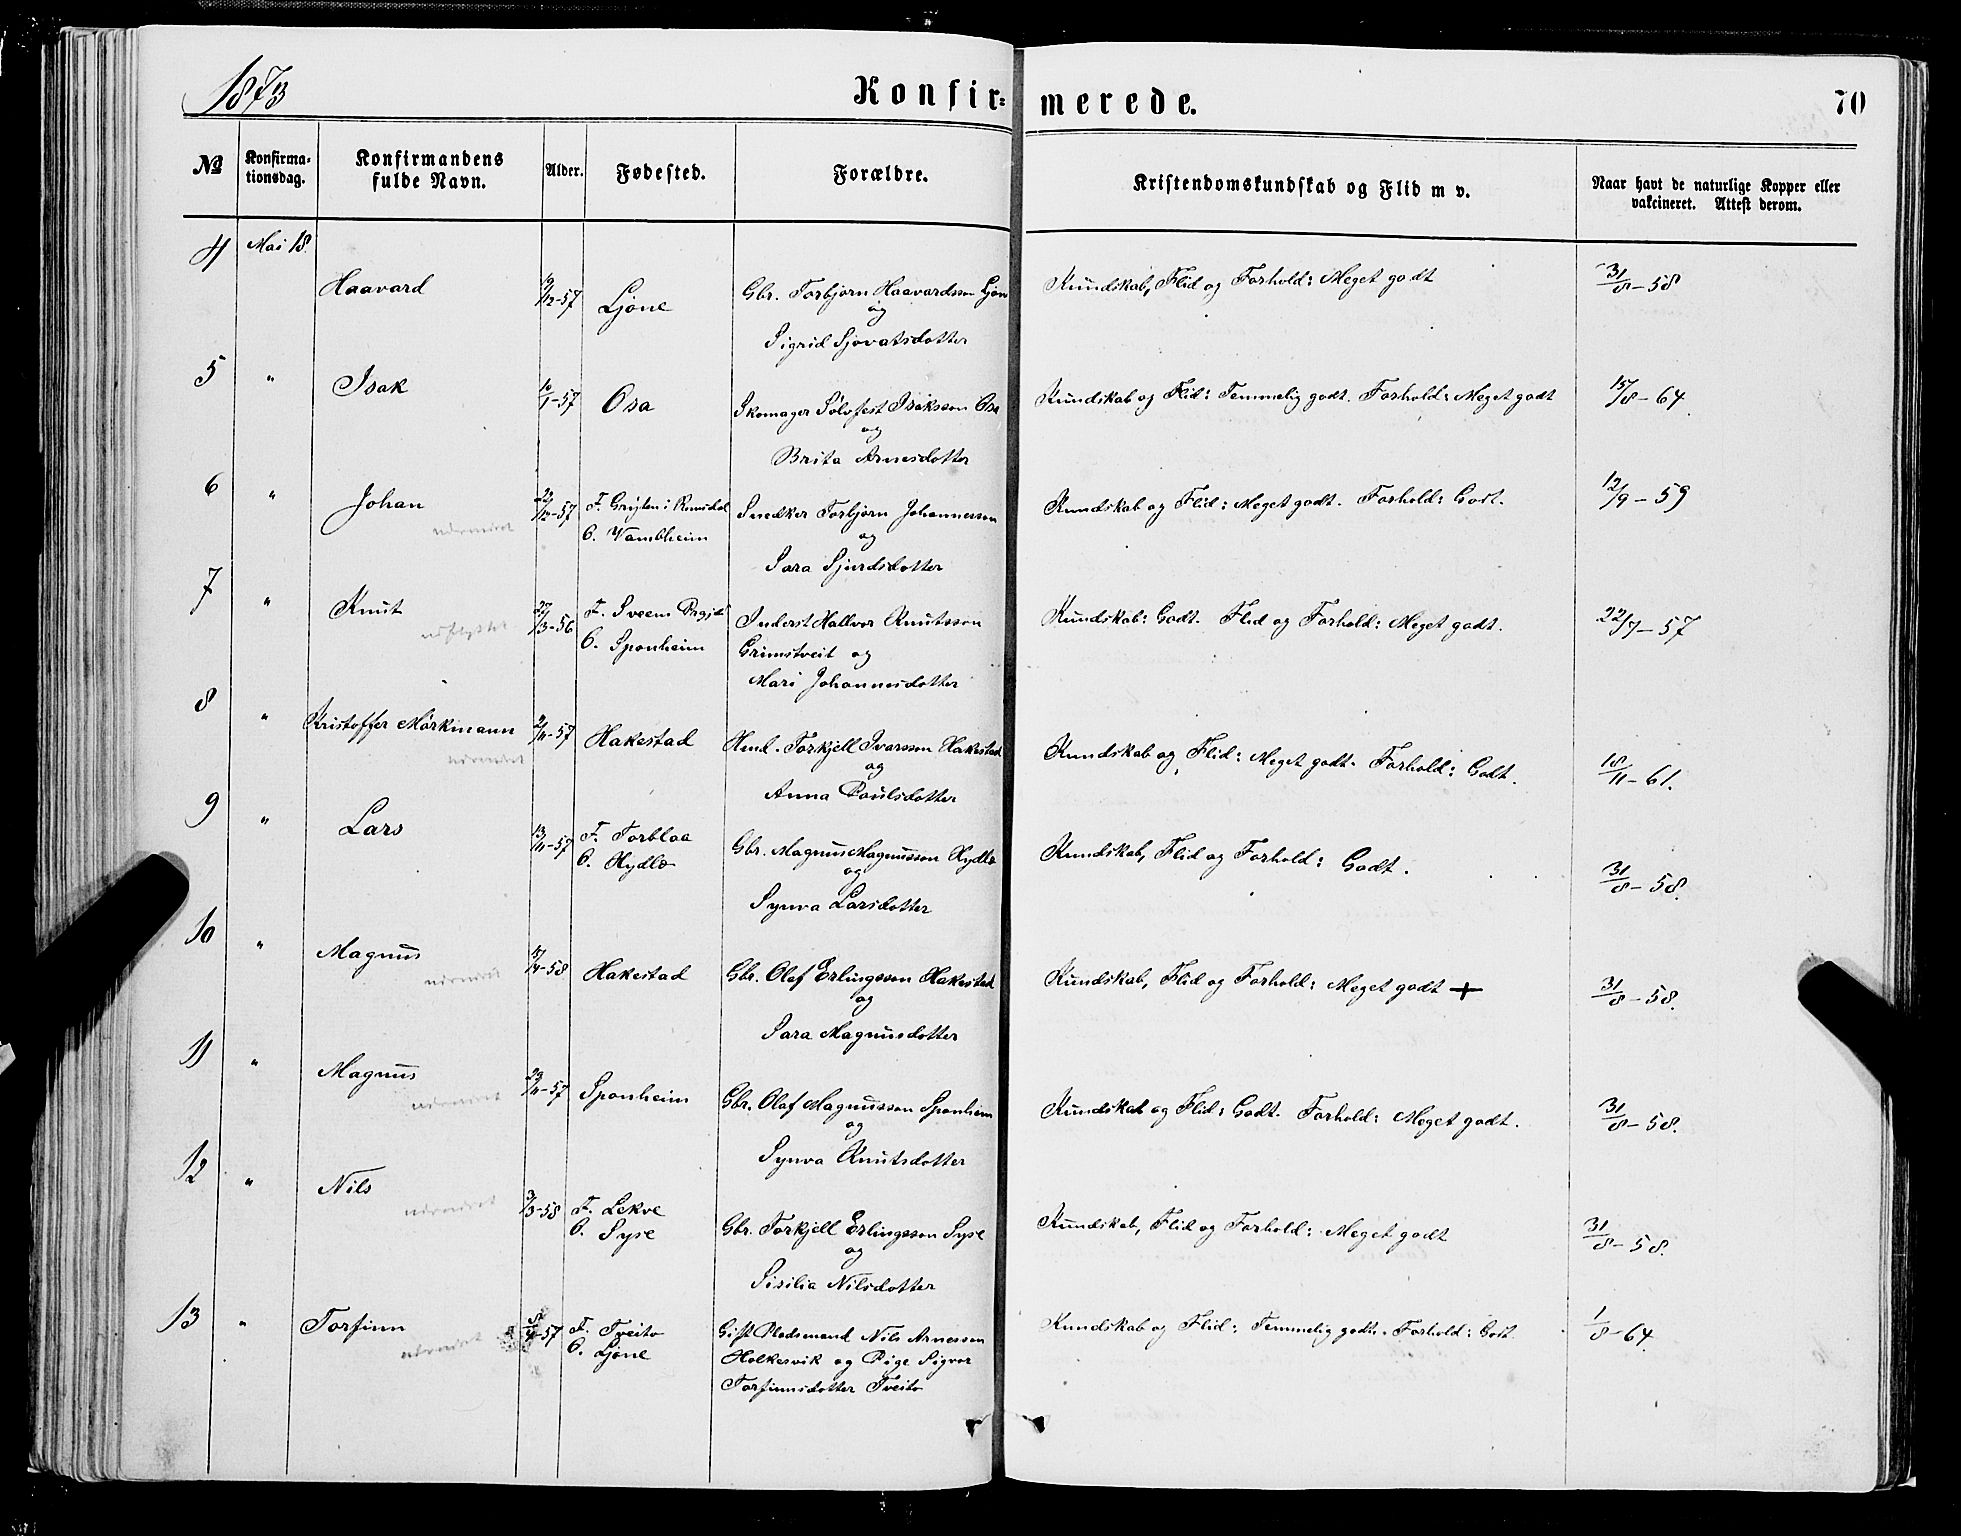 1873
Konfir=
merede.
70
№
Konfirma-
tionsdag.
Konfirmandens
fulde Navn.
Alder.
Fødested.
Forældre.
Kristendomskundskab og Flid m v.
Naar havt de naturlige Kopper eller
vakcineret. Attest derom.
4 Mai 18.
Haavard 12-57 Ljone Gbr. Torbjørn Haavardsson Ljone Kundskab, Flid og Forhold: Meget godt 31/8-58
og
Sigrid Sjovatsdotter
5 " Isak 10/1-57 Osa Skomager Sølvfest Isaksson Osa Kundskab og Flid: Temmelig godt. Forhold: Meget godt 15/8-64.
og
Brita Arnesdotter
6 " Johan 22/12-57 F. Gryten i Romsdal Snedker Torbjørn Johannesson Kundskab og Flid: Meget godt. Forhold: Godt. 12/9-59
O. Vambheim og
Sara Sjurdsdotter
7 " Knut 27/3-56 F. Sveem Inderst Hallvor Knutsson Kundskab: Godt. Flid og Forhold: Meget godt. 22/7-57
udflyttet O. Sponheim Grimstveit og
Mari Johannesdotter
8 " Kristoffer Mörkmann 2/11-57 Hakestad Hmd. Torkjell Ivarsson Hakestad Kundskab og Flid: Meget godt. Forhold: Godt. 18/11-61.
og
Anna Poulsdotter
9 " Lars 13/11-57 F. Torblaa Gbr. Magnus Magnusson Hydle Kundskab, Flid og Forhold: Godt. 31/8-58.
O. Hydle og
Synva Larsdotter
10 " Magnus 4-58 Hakestad Gbr. Olaf Erlingsson Hakestad Kundskab, Flid og Forhold: Meget godt + 31/8-58.
og
Sara Magnusdotter
11 " Magnus 29/11-57 Sponheim Gbr. Olaf Magnusson Sponheim Kundskab og Flid: Godt. Forhold: Meget godt. 31/8-58.
og
Synva Knutsdotter
12 " Nils 3/3-58 F. Lekve Gbr. Torkjell Erlingsson Syse Kundskab, Flid og Forhold: Meget godt 31/8-58.
O. Syse og
Sisilia Nilsdotter
13 " Torfinn 57 F. Tveito Gift Nils Arnesson Kundskab og Flid: Temmelig godt. Forhold: Godt. 1/8-64.
O. Ljone Holkesvik og Pige Sigvor
Torfinnsdotter Tveito